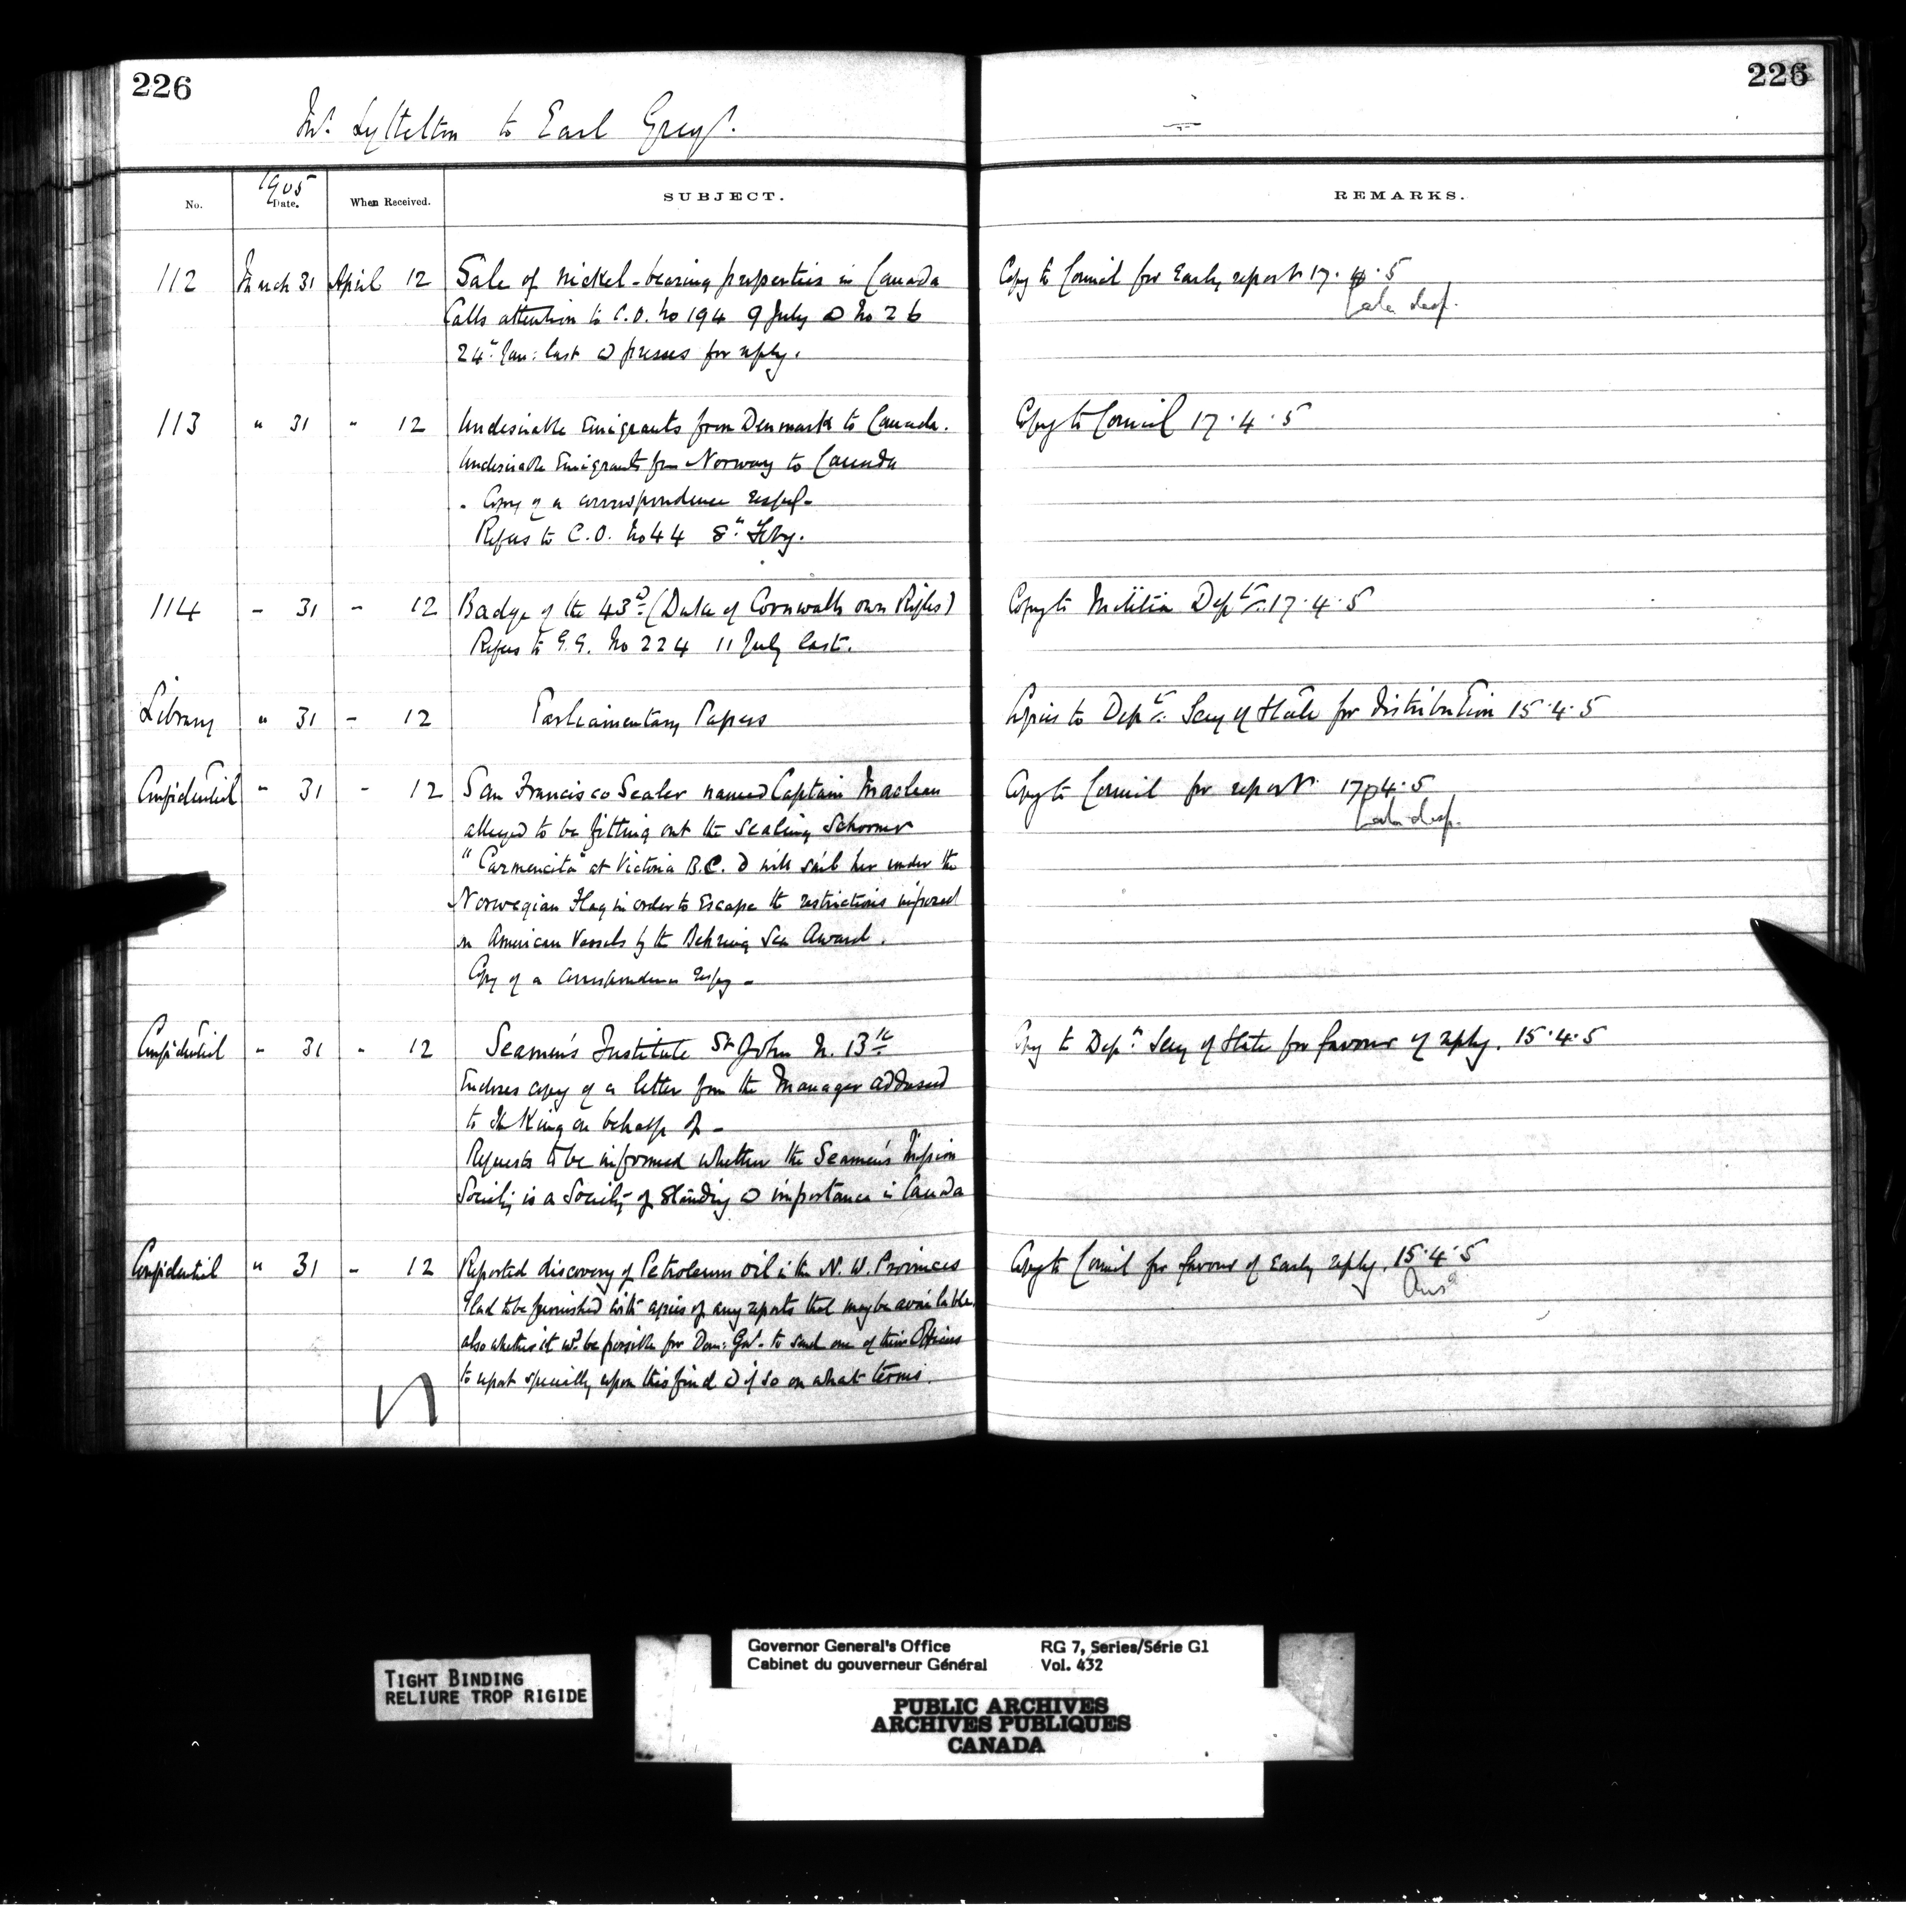 226
226
Mr. Lyttelton to Earl Grey.
No.
1905
Date.
When Received.
SUBJECT.
REMARKS.
112 March 31 April 12 Sale of nickel-bearing properties in Canada
Calls attention to C.O. No 194 9 July & No 26
24th Jan: last & presses for reply.
Copy to Council for Early report 17.4.5
Later desp.
113 " 31 - 12 Undesirable Emigrants from Denmark to Canada.
Undesirable Emigrants from Norway to Canada
- Copy of a correspondence respg-
Refers to C.O. No 44 8th Feby.
Copy to Council 17.4.5
114 - 31 - 12 Badge of the 43rd (Duke of Cornwalls own Rifles)
Refers to G.G. No 224 11 July last.
Copy to Militia Dept. 17.4.5
Library " 31 - 12 Parliamentary Papers
Copies to Dept. Secy of State for distribution 15.4.5
Confidential " 31 - 12 San Francisco Sealer named Captain Maclean
alleged to be fitting out the Sealing Schooner
"Carmencita" at Victoria B.C. & will sail her under the
Norwegian Flag in order to Escape the restrictions imposed
on American Vessels by the Behring Sea Award.
Copy of a correspondence respg -
Copy to Council for report 17.4.5
Later desp.
Confidential - 31 - 12 Seamen's Institute St John N. B.
Encloses copy of a letter from the Manager addressed
to the King on behalf of -
Requests to be informed whether the Seamen's Mission
Society is a Society of standing & importance in Canada
Copy to Dept. Secy of State for favour of reply. 15.4.5
Confidential " 31 - 12 Reported discovery of Petroleum oil in the N.W. Provinces
Glad to be furnished with copies of any reports that may be available.
also whether it wd. be possible for Dom: Govt. to send one of their Officers
to report specially upon this find & if so on what terms.
Copy to Council for favour of Early reply. 15.4.5
Ansd
TIGHT BINDING
RELIURE TROP RIGIDE
Governor General's Office
Cabinet du gouverneur Général
RG 7, Series/Série G1
Vol. 432
PUBLIC ARCHIVES
ARCHIVES PUBLIQUES
CANADA